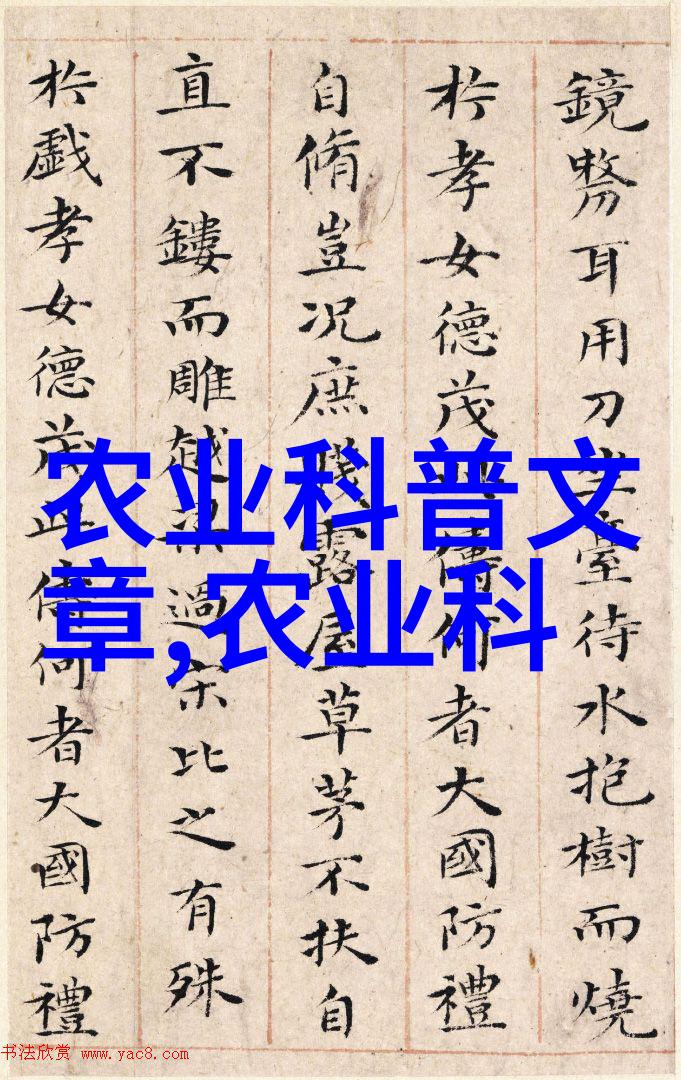 鏡剺耳用刀坐臺待水抱樹而燒
於孝女德茂此儔何者大國防禮
自脩豈況庶賤露屋草茅不扶自
直不鏤而雕越梁過宋比之有殊
於戲孝女德茂此儔何者大國防禮
农业科普文
章,农业科
书法欣赏 www.yac8.com